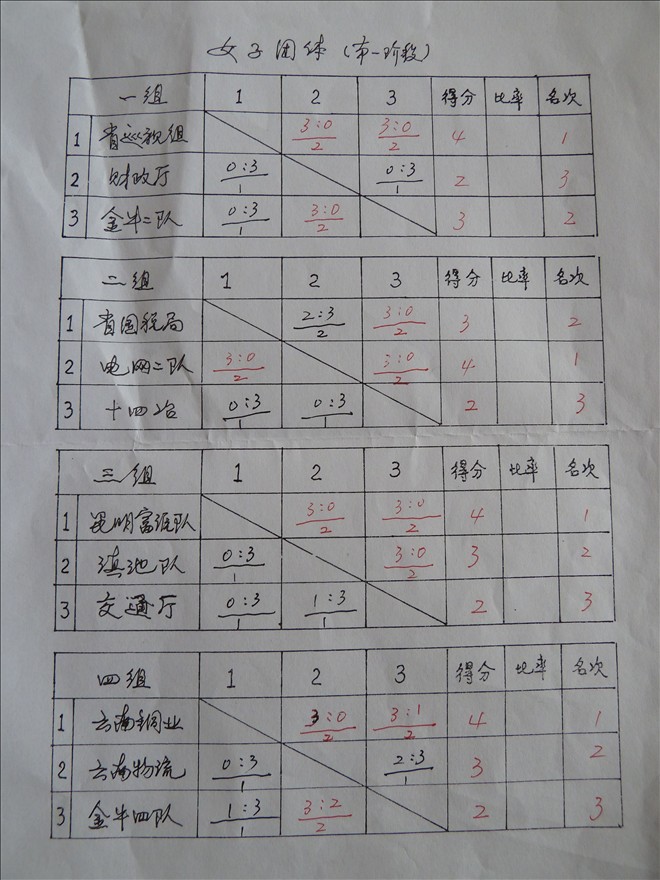 女子团体(第一阶段)
一组 1 2 3 得分 比率 名次
1 省巡视组 3:0 3:0 4 1
2 2
2 财政厅 0:3 0:3 2 3
1 1
3 金牛二队 0:3 3:0 3 2
1 2
二组 1 2 3 得分 比率 名次
1 省国税局 2:3 3:0 3 2
2 2
2 电网二队 3:0 3:0 4 1
2 2
3 十四冶 0:3 0:3 2 3
1 1
三组 1 2 3 得分 比率 名次
1 昆明富滇队 3:0 3:0 4 1
2 2
2 滇池队 0:3 3:0 3 2
1 2
3 交通厅 0:3 1:3 2 3
1 1
四组 1 2 3 得分 比率 名次
1 云南铜业 3:0 3:1 4 1
2 2
2 云南物流 0:3 2:3 3 2
1 1
3 金牛四队 1:3 3:2 2 3
1 2